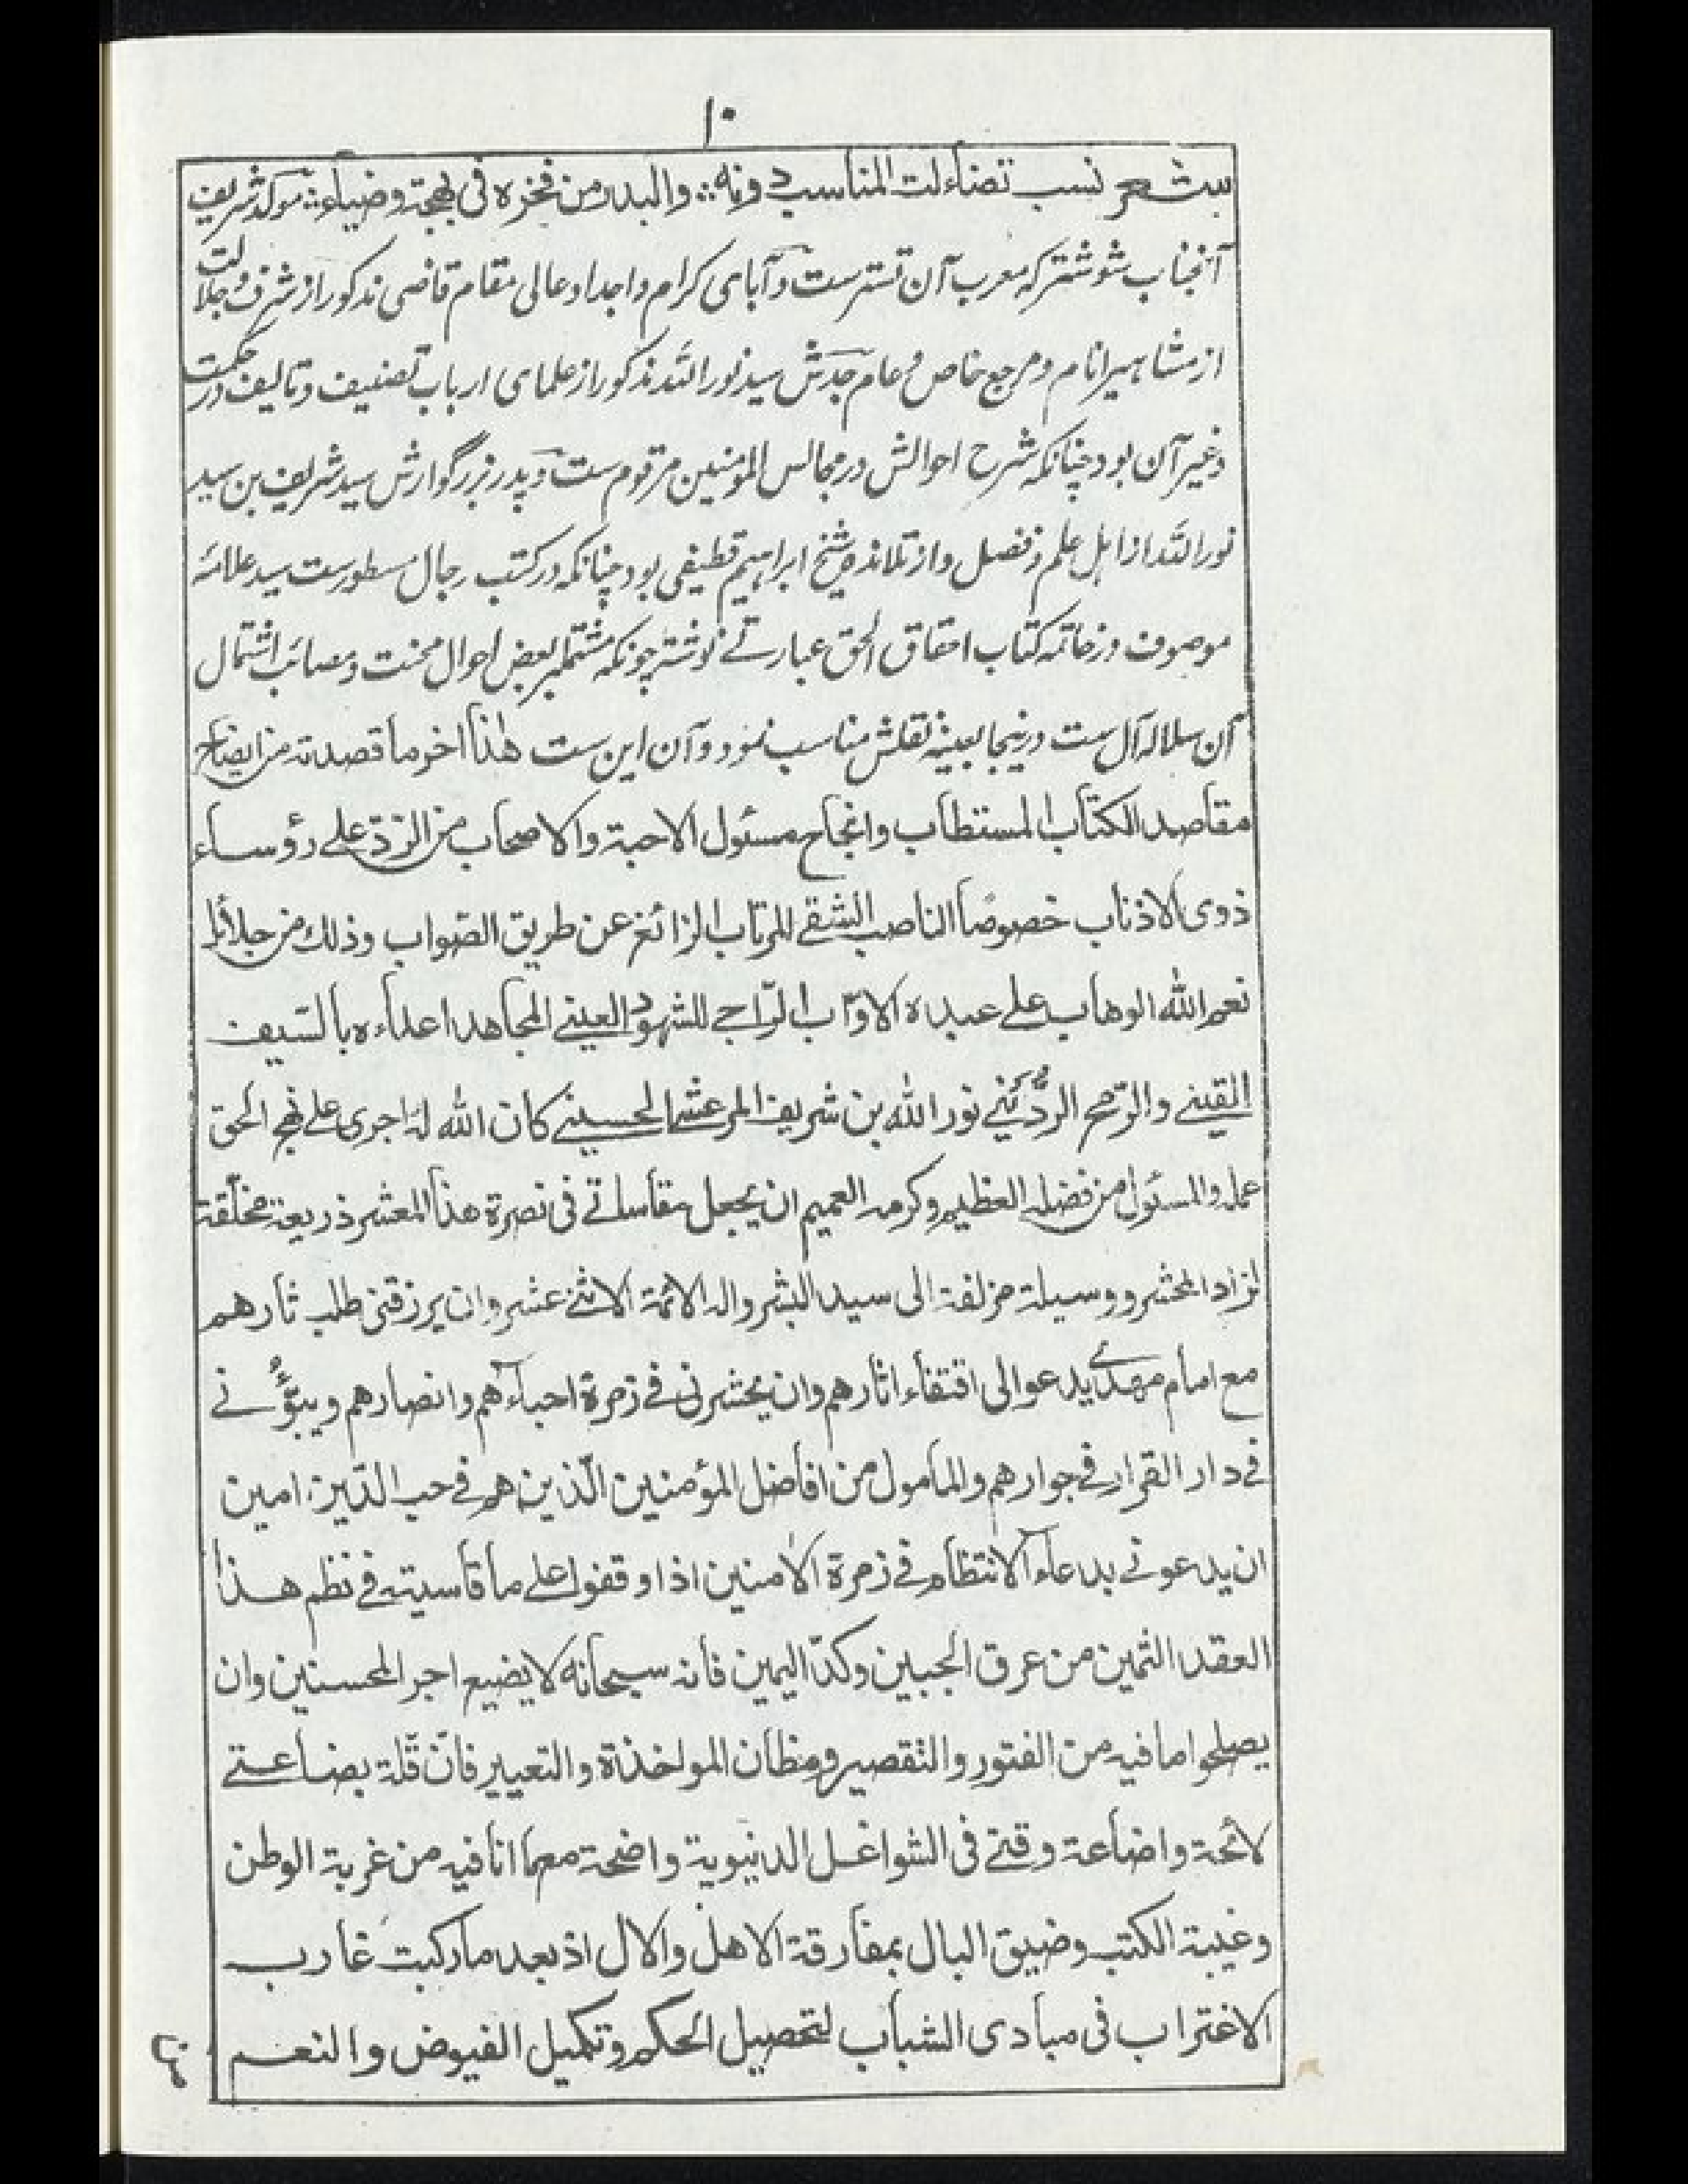 ۱۰
بیت شعر نسب تضاءلت المناسب دونه :: والبدر من فخره فی بهجة وضیاء :: مولد شریف
آنجناب شوشتر که معرب آن تسترست وآبای کرام واجداد عالی مقام قاضی مذکور از شرف وجلالت
از مشاهیر انام ومرجع خاص وعام جدش سید نور الله مذکور از علمای ارباب تصنیف وتالیف در حکمت
وغیر آن بود چنانکه شرح احوالش در مجالس المؤمنین مرقوم ست وپدر بزرگوارش سید شریف بن سید
نور الله از اهل علم وفضل واز تلامذه شیخ ابراهیم قطیفی بود چنانکه در کتب رجال مسطورست سید علامه
موصوف در خاتمه کتاب احقاق الحق عبارتے نوشته چونکه مشتمل بر بعض احوال محنت ومصائب اشتمال
آن سلاله آل ست درینجا بعینه نقلش مناسب نمود وآن این ست هذا اخر ما قصدته من ایضاح
مقاصد الکتاب المستطاب وانجاح مسئول الاحبة والاصحاب من الرّدّ علی رؤساء
ذوی الاذناب خصوصًا الناصب الشقے المرتاب الزائغ عن طریق الصّواب وذلك من جلائل
نعم الله الوهاب علے عبده الاوّاب الرّاجے للشهود العینے المجاهد اعداءه بالسّیف
القینے والرّمح الردُّینے نور الله بن شریف المرعشے الحسینے کان الله له اجری علے نهج الحق
عمله والمسئول من فضله العظیم وکرمه العمیم ان یجعل مقاساتے فی نصرة هذا المعشر ذریعة مخلّقة
لزاد المحشر ووسیلة مزلفة الی سید البشر واله الائمة الاثنے عشر وان یرزقنی طلب ثارهم
مع امام مهدے یدعو الی اقتفاء اثارهم وان یحشرنی فے زمرة احباءهم وانصارهم ویبوّئنے
فے دار القرار فے جوارهم والمامول من افاضل المؤمنین الّذین هم فے حب الدّین امین
ان یدعونے بدعاء الانتظام فے زمرة الاٰمنین اذا وقفوا علے ما قاسیته فے نظم هذا
العقد الثمین من عرق الجبین وکدّ الیمین فانه سبحانه لا یضیع اجر المحسنین وان
یصلحوا ما فیه من الفتور والتقصیر ومظان المواخذة والتعییر فانّ قلّة بضاعتے
لائحة واضاعة وقتے فی الشواغل الدنیویة واضحة مع ما انا فیه من غربة الوطن
وغیبة الکتب وضیق البال بمفارقة الاهل والاٰل اذ بعد ما رکبت غارب
الاغتراب فی مبادی الشباب لتحصیل الحکم وتکمیل الفیوض والنعم